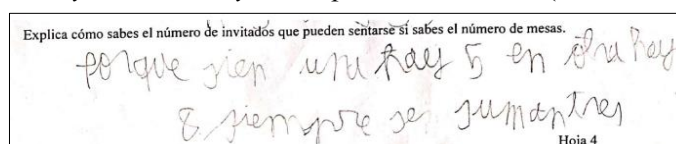 Explica cómo sabes el número de invitados que pueden sentarse si sabes el número de mesas.
porque sien una hay 5 en otra hay
8 siempre se sumantres
Hoja 4